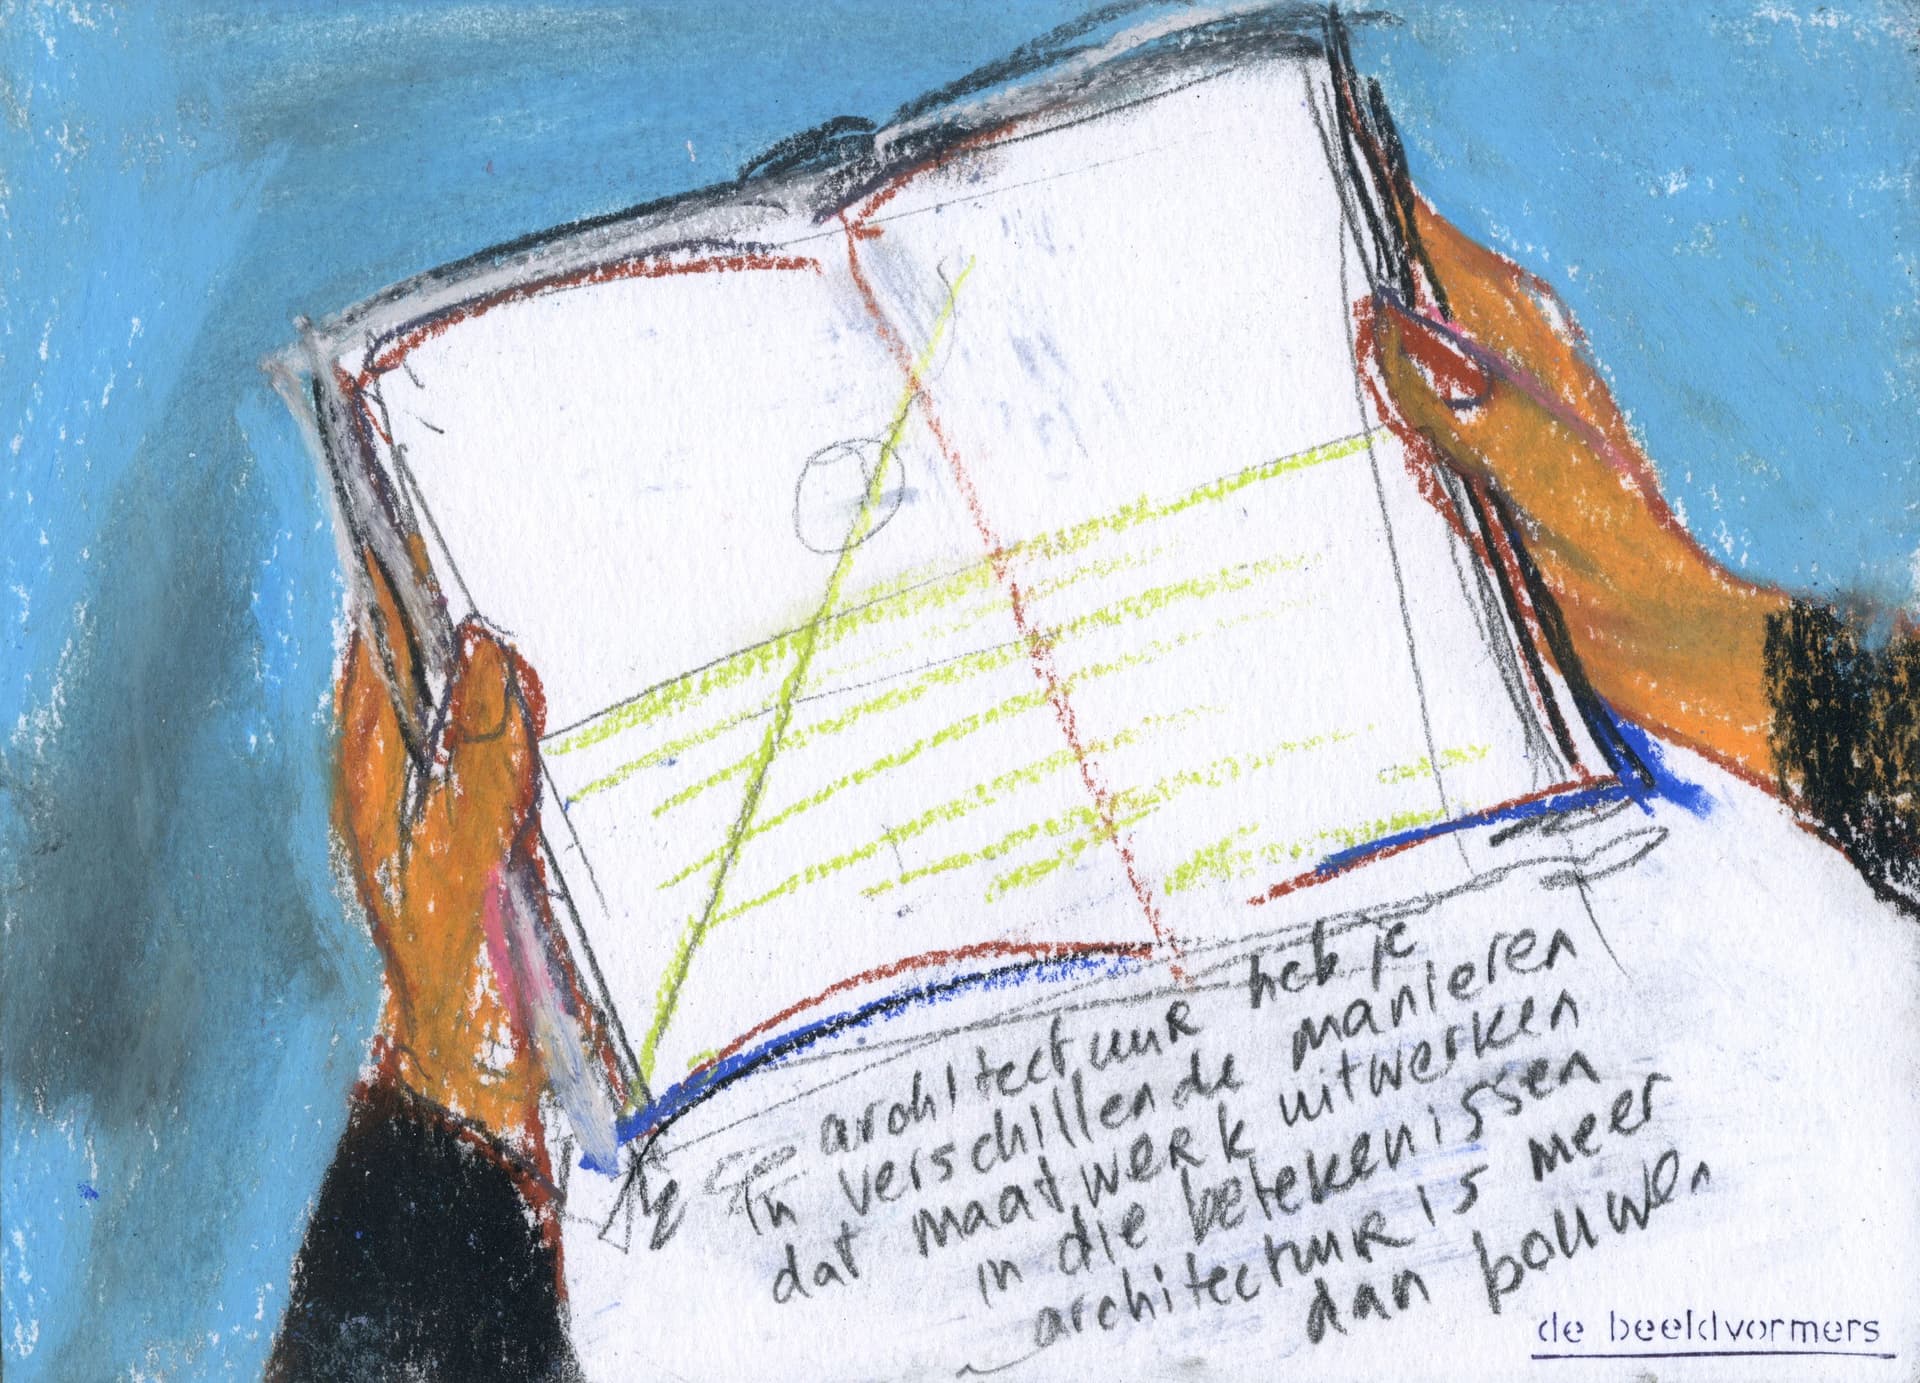 architectuur heb je
in verschillende manieren
dat maatwerk uitwerken
in die betekenissen
architectuur is meer
dan bouwen
de beeldvormers